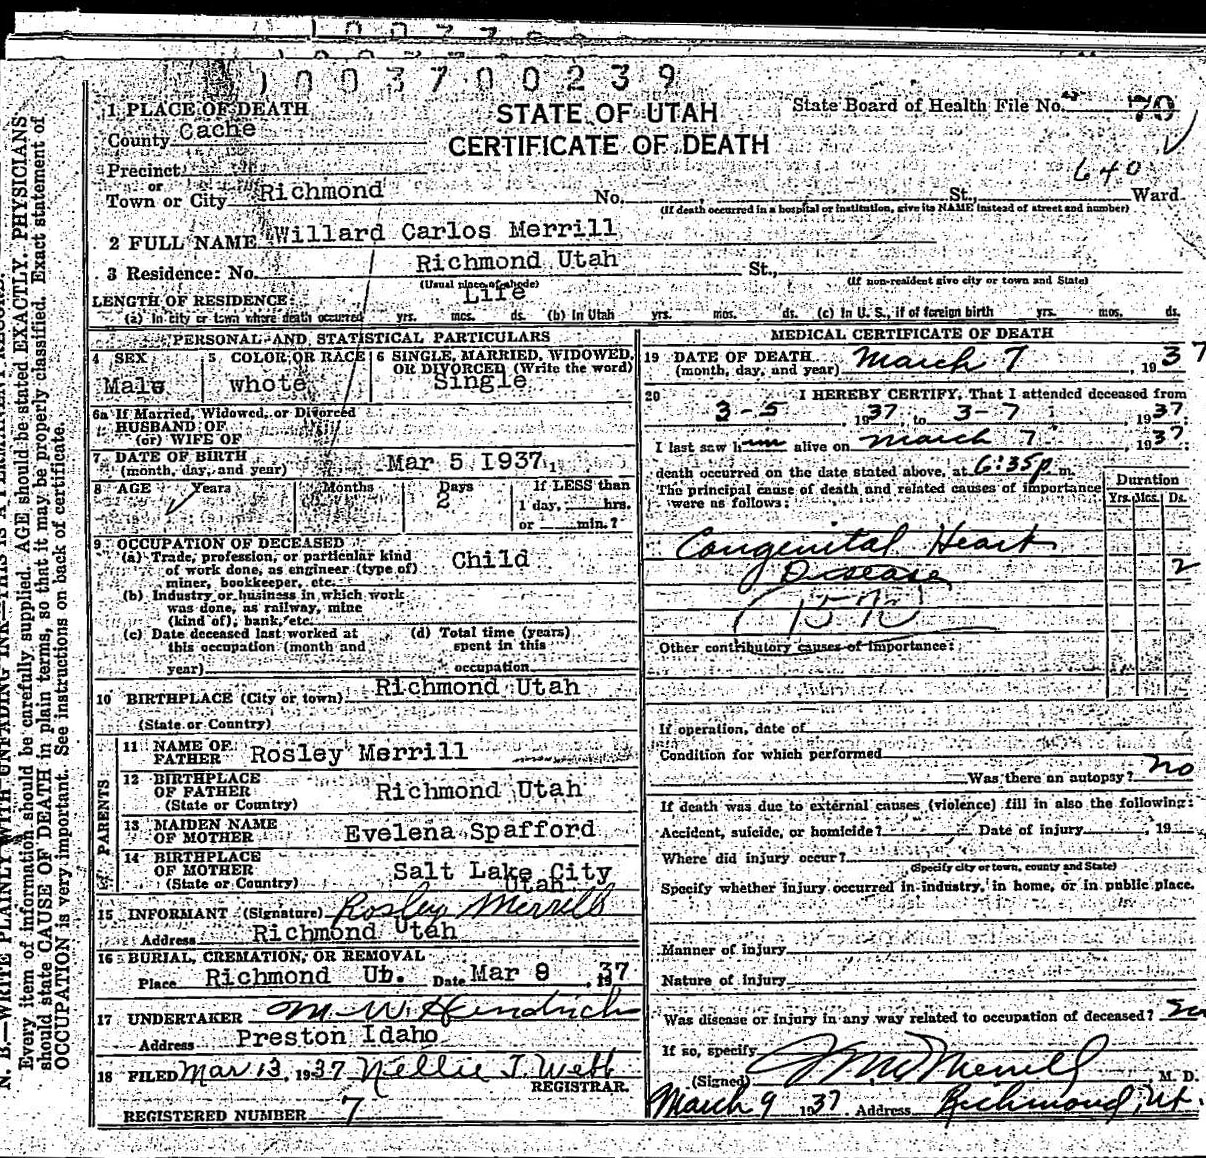 1003700239
STATE OF UTAH
CERTIFICATE OF DEATH
State Board of Health File No. 70
640
1 PLACE OF DEATH
County Cache
Precinct
or
Town or City Richmond No. St., Ward
(If death occurred in a hospital or institution, give its NAME instead of street and number)
2 FULL NAME Willard Carlos Merrill
3 Residence: No. Richmond Utah St.,
(Usual place of abode) (If non-resident give city or town and State)
LENGTH OF RESIDENCE: Life
(a) In city or town where death occurred yrs. mos. ds. (b) In Utah yrs. mos. ds. (c) In U. S., if of foreign birth yrs. mos. ds.
PERSONAL AND STATISTICAL PARTICULARS
4 SEX Male
5 COLOR OR RACE whote
6 SINGLE, MARRIED, WIDOWED, OR DIVORCED (Write the word) Single
6a If Married, Widowed, or Divorced
HUSBAND OF
(or) WIFE OF
7 DATE OF BIRTH
(month, day, and year) Mar 5 1937
8 AGE Years Months Days 2 If LESS than
1 day, hrs.
or min.?
9 OCCUPATION OF DECEASED
(a) Trade, profession, or particular kind
of work done, as engineer (type of)
miner, bookkeeper, etc. Child
(b) Industry or business in which work
was done, as railway, mine
(kind of), bank, etc.
(c) Date deceased last worked at
this occupation (month and
year)
(d) Total time (years)
spent in this
occupation
10 BIRTHPLACE (City or town) Richmond Utah
(State or Country)
PARENTS
11 NAME OF
FATHER Rosley Merrill
12 BIRTHPLACE
OF FATHER Richmond Utah
(State or Country)
13 MAIDEN NAME
OF MOTHER Evelena Spafford
14 BIRTHPLACE
OF MOTHER Salt Lake City
(State or Country) Utah
15 INFORMANT (Signature) Rosley Merrill
Address Richmond Utah
16 BURIAL, CREMATION, OR REMOVAL
Place Richmond Ut. Date Mar 9, 1937
17 UNDERTAKER M. W. Hendrich
Address Preston Idaho
18 FILED Mar 13, 1937 Nellie T. Webb
REGISTRAR.
REGISTERED NUMBER 7
MEDICAL CERTIFICATE OF DEATH
19 DATE OF DEATH
(month, day, and year) March 7, 1937
20 I HEREBY CERTIFY, That I attended deceased from
3-5, 1937, to 3-7, 1937
I last saw him alive on March 7, 1937
death occurred on the date stated above, at 6:35p m.
The principal cause of death and related causes of importance
were as follows:
Duration
Yrs. Mos. Ds.
Congenital Heart
Disease 2
Other contributory causes of importance:
If operation, date of
Condition for which performed
Was there an autopsy? no
If death was due to external causes (violence) fill in also the following:
Accident, suicide, or homicide? Date of injury, 19
Where did injury occur?
(Specify city or town, county and State)
Specify whether injury occurred in industry, in home, or in public place.
Manner of injury
Nature of injury
Was disease or injury in any way related to occupation of deceased? no
If so, specify
(Signed) Merrill, M. D.
March 9 1937. Address Richmond, Ut.
N. B.—WRITE PLAINLY WITH UNFADING INK—THIS IS A PERMANENT RECORD.
Every item of information should be carefully supplied. AGE should be stated EXACTLY. PHYSICIANS
should state CAUSE OF DEATH in plain terms, so that it may be properly classified. Exact statement of
OCCUPATION is very important. See instructions on back of certificate.